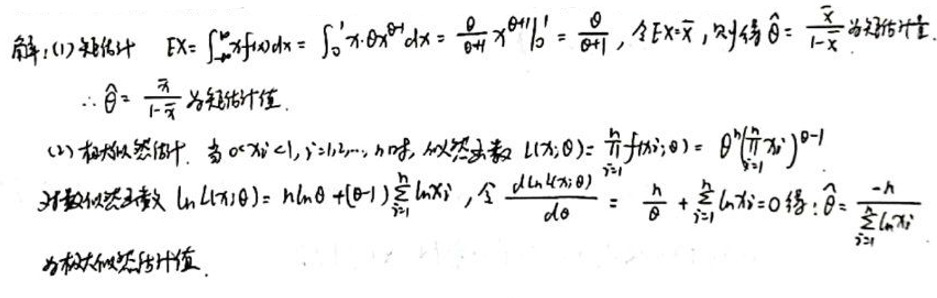 解:(1)矩估计 EX=∫_{-∞}^{+∞}xf(x)dx=∫_0^1 x·θx^{θ-1}dx=θ/(θ+1) x^{θ+1}|_0^1=θ/(θ+1),令EX=x̄,则得θ̂=x̄/(1-x̄)为矩估计量.
∴θ̂=x̄/(1-x̄)为矩估计值.
(2)极大似然估计.当0<xi<1,i=1,2,…,n时,似然函数L(x;θ)=∏_{i=1}^n f(xi;θ)=θ^n(∏_{i=1}^n xi)^{θ-1}
对数似然函数 ln L(x;θ)=n lnθ+(θ-1)∑_{i=1}^n lnxi,令 dlnL(x;θ)/dθ=n/θ+∑_{i=1}^n lnxi=0得:θ̂=-n/∑_{i=1}^n lnxi
为极大似然估计值.